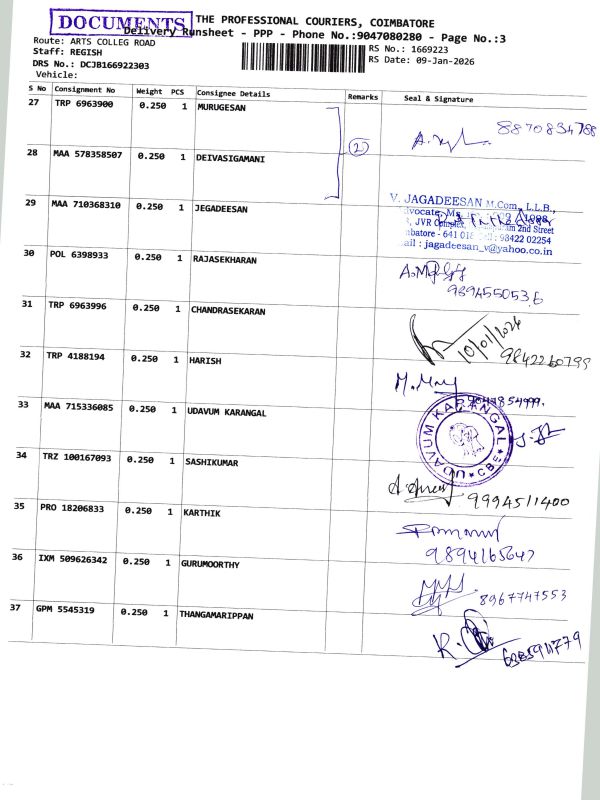 DOCUMENTS
THE PROFESSIONAL COURIERS, COIMBATORE
Delivery Runsheet - PPP - Phone No.:9047080280 - Page No.:3
Route: ARTS COLLEG ROAD
RS No.: 1669223
Staff: REGISH
RS Date: 09-Jan-2026
DRS No.: DCJB166922303
Vehicle:
S No Consignment No Weight PCS Consignee Details Remarks Seal & Signature
27 TRP 6963900 0.250 1 MURUGESAN 8870834788
2
28 MAA 578358507 0.250 1 DEIVASIGAMANI
29 MAA 710368310 0.250 1 JEGADEESAN
V. JAGADEESAN M.Com., L.L.B.,
JVR 2nd Street
641 018 98422 02254
jagadeesan_v@yahoo.co.in
30 POL 6398933 0.250 1 RAJASEKHARAN
9894550536
31 TRP 6963996 0.250 1 CHANDRASEKARAN
10/01/2026
9842260799
32 TRP 4188194 0.250 1 HARISH
33 MAA 715336085 0.250 1 UDAVUM KARANGAL
UDAVUM KARANGAL CBE
34 TRZ 100167093 0.250 1 SASHIKUMAR
9994511400
35 PRO 18206833 0.250 1 KARTHIK
9894165647
36 IXM 509626342 0.250 1 GURUMOORTHY
8967747553
37 GPM 5545319 0.250 1 THANGAMARIPPAN